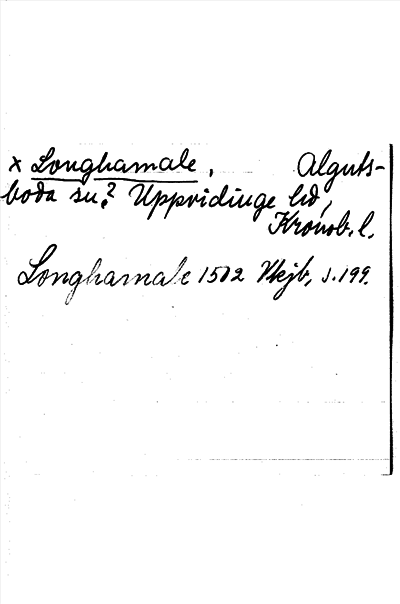 x Longhamale, Alguts-
boda sn.? Uppvidinge hd,
Kronob. l.
Longhamale 1502 Vkjb, s. 199.